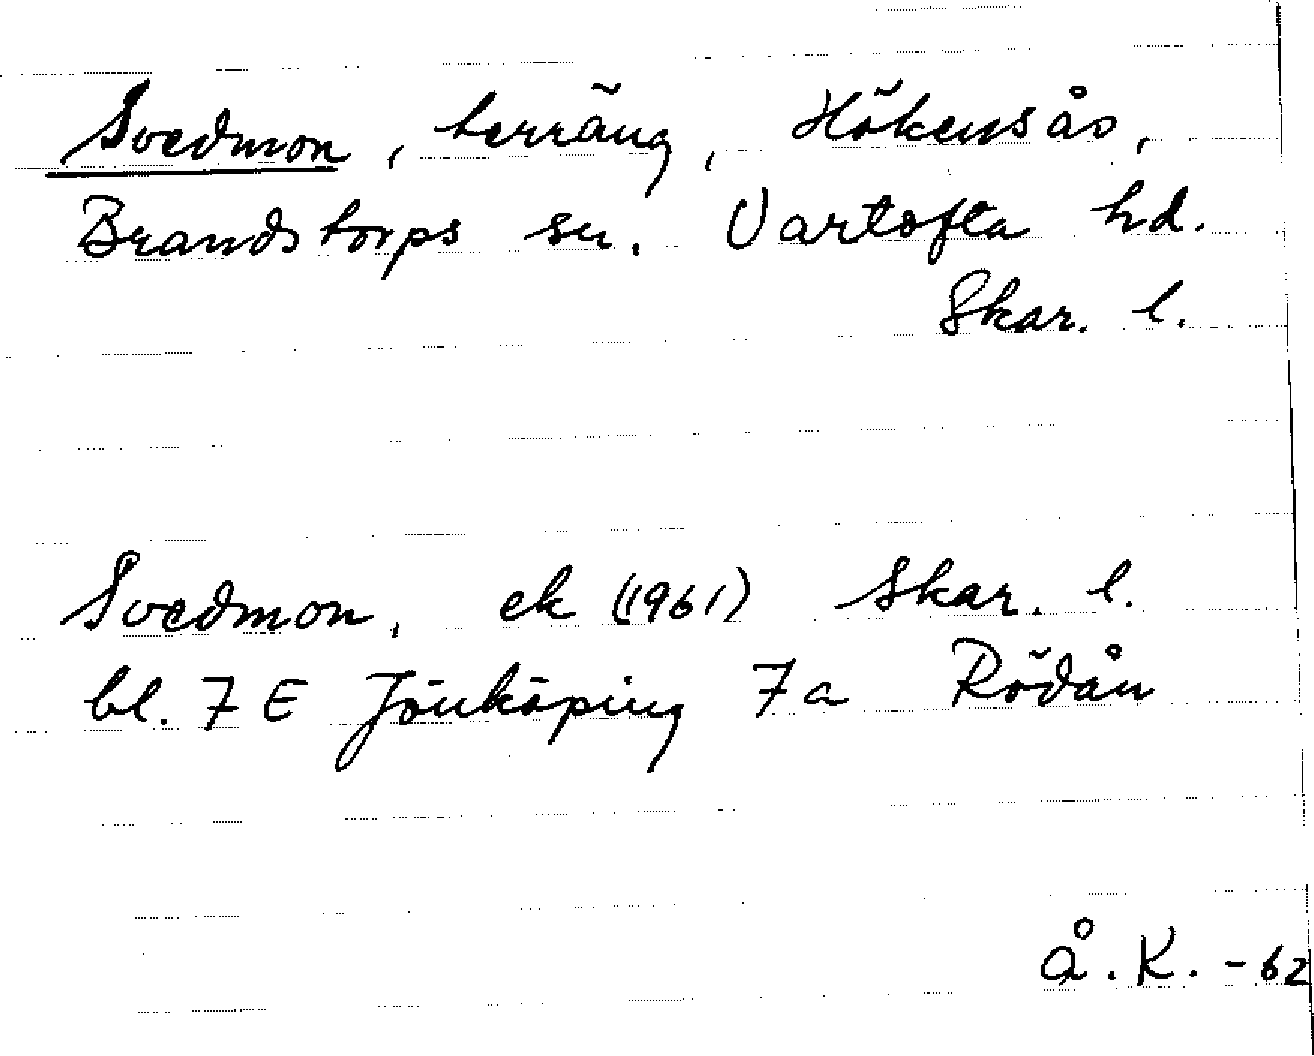 Svedmon, terräng, Hökensås,
Brandstorps sn. Vartofta hd.
Skar. l.
Svedmon, ek (1961) Skar. l.
bl. 7 E Jönköping 7a Rödån
Å.K. -62